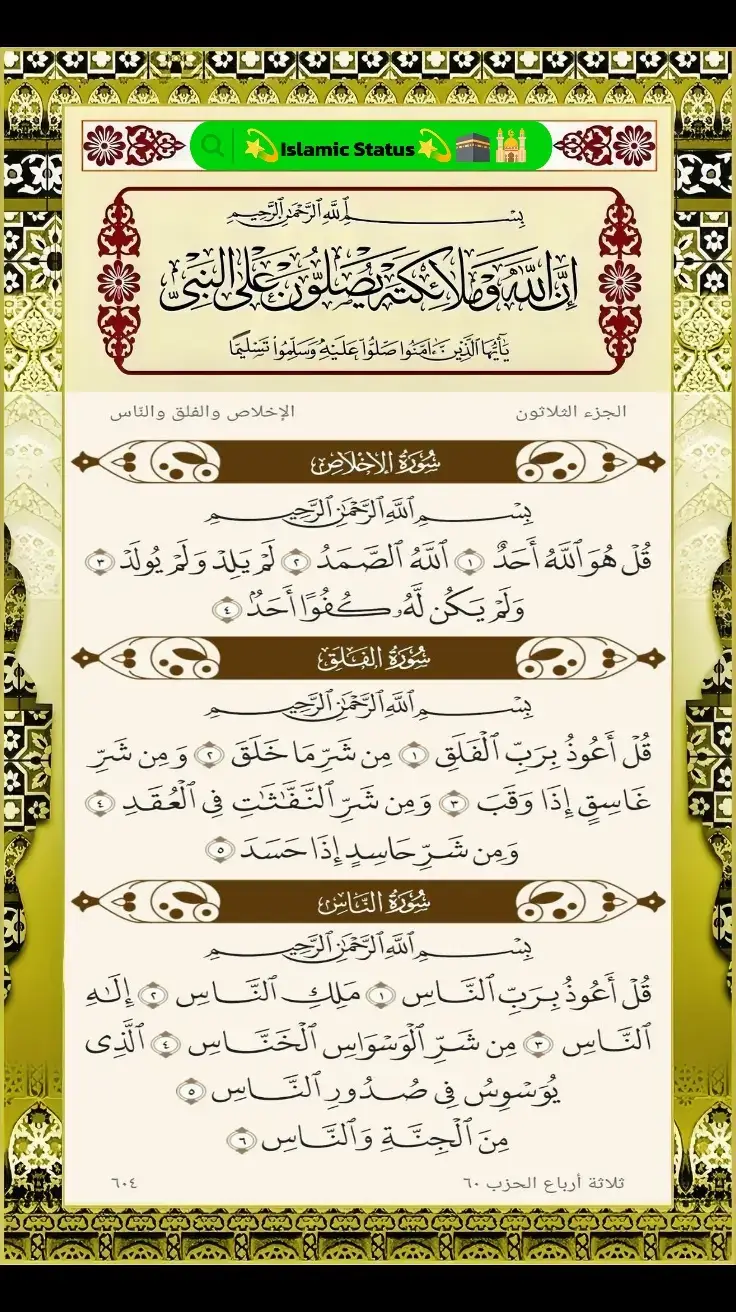 Islamic Status
بِسْمِ اللَّهِ الرَّحْمَٰنِ الرَّحِيمِ
إِنَّ اللَّهَ وَمَلَائِكَتَهُ يُصَلُّونَ عَلَى النَّبِيِّ
يَٰٓأَيُّهَا الَّذِينَ ءَامَنُوا صَلُّوا عَلَيْهِ وَسَلِّمُوا تَسْلِيمًا
الجزء الثلاثون الإخلاص والفلق والنّاس
سُورَةُ الإِخْلَاصِ
بِسْمِ ٱللَّهِ ٱلرَّحْمَٰنِ ٱلرَّحِيمِ
قُلْ هُوَ ٱللَّهُ أَحَدٌ ١ ٱللَّهُ ٱلصَّمَدُ ٢ لَمْ يَلِدْ وَلَمْ يُولَدْ ٣
وَلَمْ يَكُن لَّهُۥ كُفُوًا أَحَدٌۢ ٤
سُورَةُ الفَلَقِ
بِسْمِ ٱللَّهِ ٱلرَّحْمَٰنِ ٱلرَّحِيمِ
قُلْ أَعُوذُ بِرَبِّ ٱلْفَلَقِ ١ مِن شَرِّ مَا خَلَقَ ٢ وَمِن شَرِّ
غَاسِقٍ إِذَا وَقَبَ ٣ وَمِن شَرِّ ٱلنَّفَّٰثَٰتِ فِى ٱلْعُقَدِ ٤
وَمِن شَرِّ حَاسِدٍ إِذَا حَسَدَ ٥
سُورَةُ النَّاسِ
بِسْمِ ٱللَّهِ ٱلرَّحْمَٰنِ ٱلرَّحِيمِ
قُلْ أَعُوذُ بِرَبِّ ٱلنَّاسِ ١ مَلِكِ ٱلنَّاسِ ٢ إِلَٰهِ
ٱلنَّاسِ ٣ مِن شَرِّ ٱلْوَسْوَاسِ ٱلْخَنَّاسِ ٤ ٱلَّذِى
يُوَسْوِسُ فِى صُدُورِ ٱلنَّاسِ ٥
مِنَ ٱلْجِنَّةِ وَٱلنَّاسِ ٦
ثلاثة أرباع الحزب ٦٠ ٦٠٤